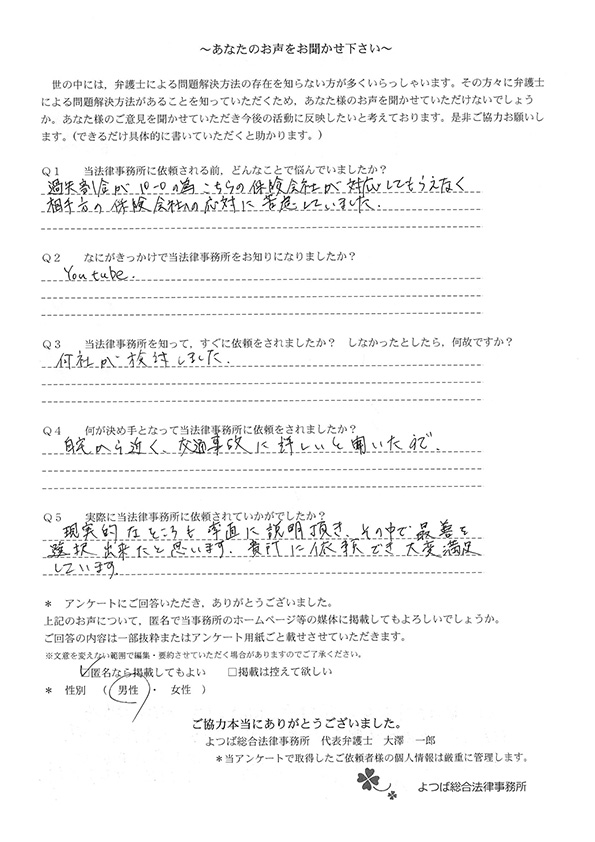 ～あなたのお声をお聞かせ下さい～
世の中には，弁護士による問題解決方法の存在を知らない方が多くいらっしゃいます。その方々に弁護士
による問題解決方法があることを知っていただくため，あなた様のお声を聞かせていただけないでしょう
か。あなた様のご意見を聞かせていただき今後の活動に反映したいと考えております。是非ご協力お願いしま
す。(できるだけ具体的に書いていただくと助かります。)
Q1 当法律事務所に依頼される前，どんなことで悩んでいましたか？
過失割合が10-0の為こちらの保険会社が対応してもらえなく
相手方の保険会社の応対に苦慮していました.
Q2 なにがきっかけで当法律事務所をお知りになりましたか？
Youtube.
Q3 当法律事務所を知って，すぐに依頼をされましたか？ しなかったとしたら，何故ですか？
何社か 検討しました.
Q4 何が決め手となって当法律事務所に依頼をされましたか？
自宅から近く、交通事故に詳しいと聞いたので.
Q5 実際に当法律事務所に依頼されていかがでしたか？
現実的なところを 率直に説明頂き、その中で最善を
選択出来たと思います. 貴所に依頼でき大変満足
しています.
＊ アンケートにご回答いただき，ありがとうございました。
上記のお声について，匿名で当事務所のホームページ等の媒体に掲載してもよろしいでしょうか。
ご回答の内容は一部抜粋またはアンケート用紙ごと載せさせていただきます。
※文意を変えない範囲で編集・要約させていただく場合がありますのでご了承ください。
☑匿名なら掲載してもよい □掲載は控えて欲しい
＊ 性別 （ 男性 ・ 女性 ）
ご協力本当にありがとうございました。
よつば総合法律事務所 代表弁護士 大澤 一郎
＊当アンケートで取得したご依頼者様の個人情報は厳重に管理します。
よつば総合法律事務所